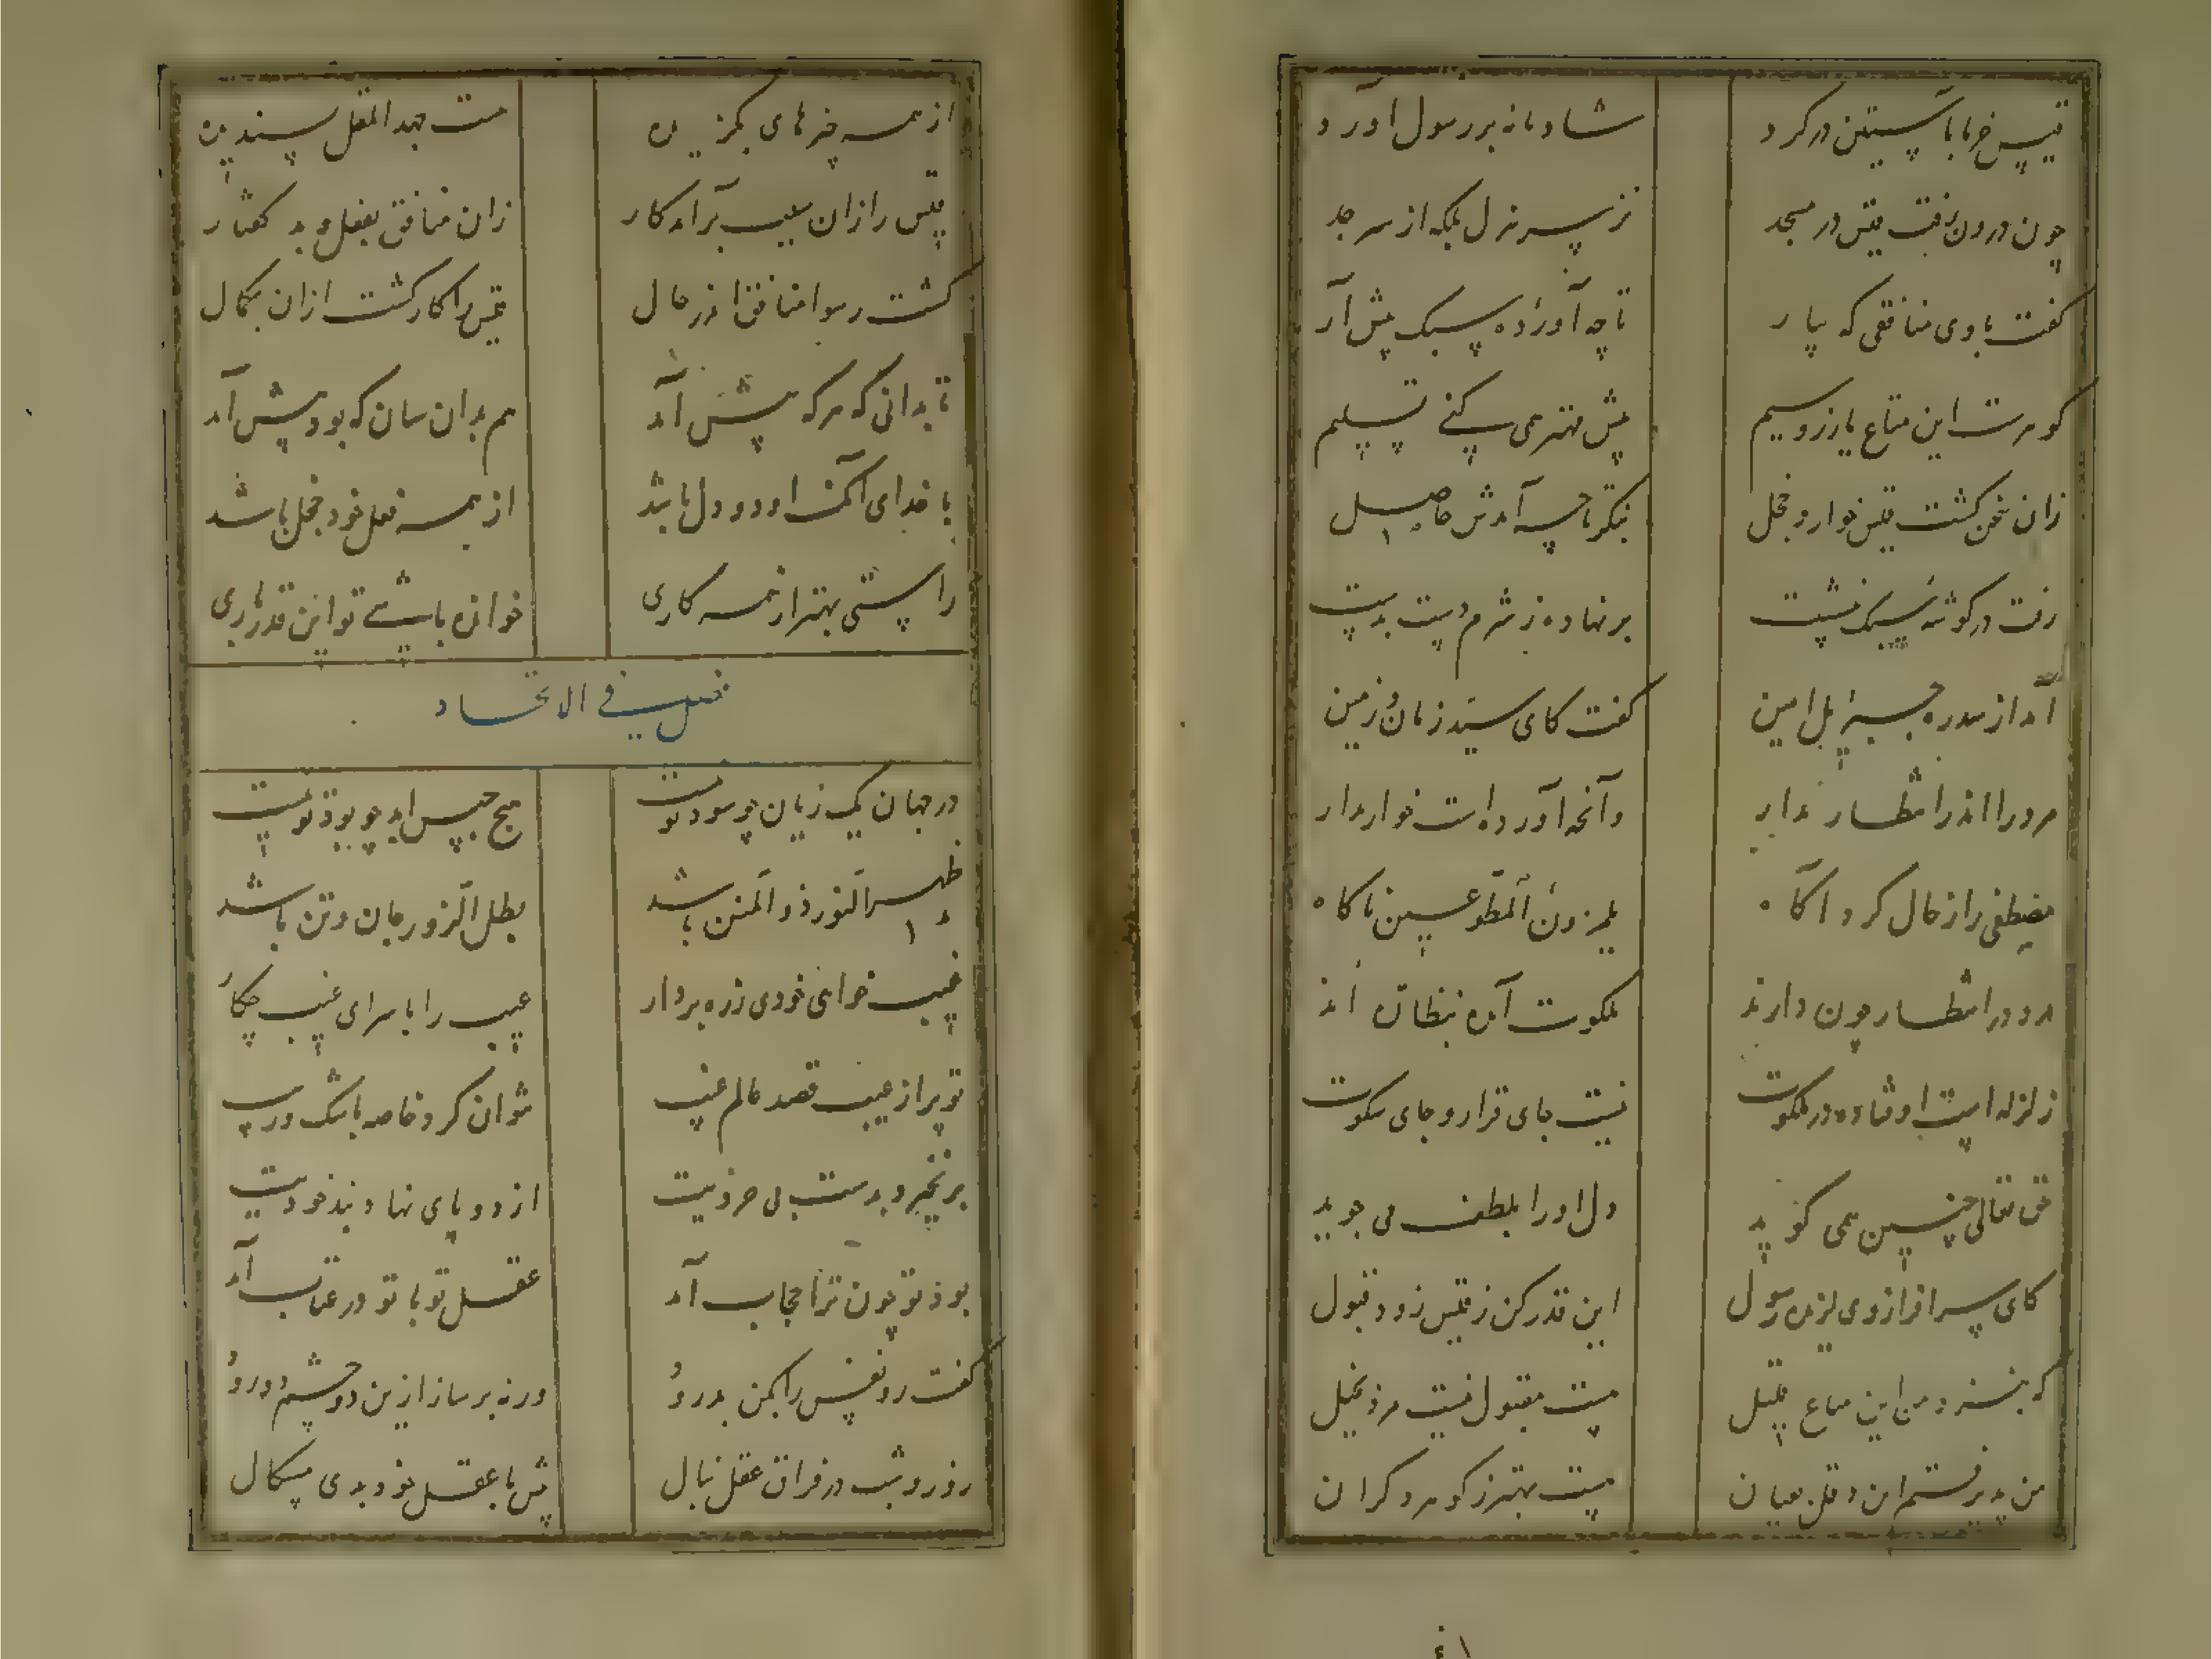 قیس خرما بآستین در کرد شادمانه بر رسول آورد
چون درون رفت قیس در مسجد نز سر هزل بلکه از سر جد
گفت با وی منافقی که بیار تا چه آورده سبک پیش آر
گوهرست این متاع یا زر و سیم پیش مهتر همی کنی تسلیم
زان سخن گشت قیس خوار و خجل بنگر تا چه آمدش حاصل
رفت در گوشه سبک بنشست بر نهاده ز شرم دست بدست
آمد از سدره جبرئیل امین گفت کای سید زمان و زمین
مرد را اندر انتظار مدار وآنچه آورده است خوار مدار
مصطفی را ز حال کرد آگاه یلمزون المطوعین ناگاه
مرد در انتظار چون دارند ملکوت آمده بنظاره اند
زلزله است اوفتاده در ملکوت نیست جای قرار و جای سکوت
حق تعالی چنین همی گوید دل او را بلطف می جوید
کای سرافراز وی گزیده رسول این قدر کن ز قیس زود قبول
که بنزد من این متاع قلیل هست مقبول نیست مرد بخیل
من پذیرفتم این دقل بعیان هست بهتر ز گوهر گران
از همه چیزهای بگزیده هست جهد المقل پسندیده
قیس را زان سبب برآمد کار زان منافق بفعل و بد گفتار
گشت رسوا منافق اندر حال قیس را کار گشت ازان بکمال
تا بدانی که هرکه پیش آمد هم بدان سان که بود پیش آمد
با خدای آنک او دو دل باشد از همه فعل خود خجل باشد
راستی بهتر از همه کاری خوانده باشی تو این قدر باری
فصل فی الاتحاد
در جهان یک زیان چو سود تو نیست هیچ حبس ابد چو بود تو نیست
ظهر النور ذو المنن باشد بطل الزور جان و تن باشد
غیب خواهی خودی ز ره بردار عیب را با سرای غیب چکار
تو پر از عیب قصد عالم غیب نتوان کرد خاصه با شک و ریب
بر نخیزد بدست بی خردیت از دو پای نهاد بند خودیت
بود تو چون ترا حجاب آمد عقل تو با تو در عتاب آمد
گفت رو نفس را بکن بدرود ورنه برساز ازین دو چشم دو رود
روز و شب در فراق عقل بنال پیش با عقل خود بدی مسگال